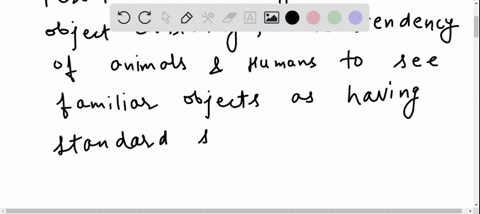 object
tendency
of animals & Humans to see
familiar objects as having
standard s